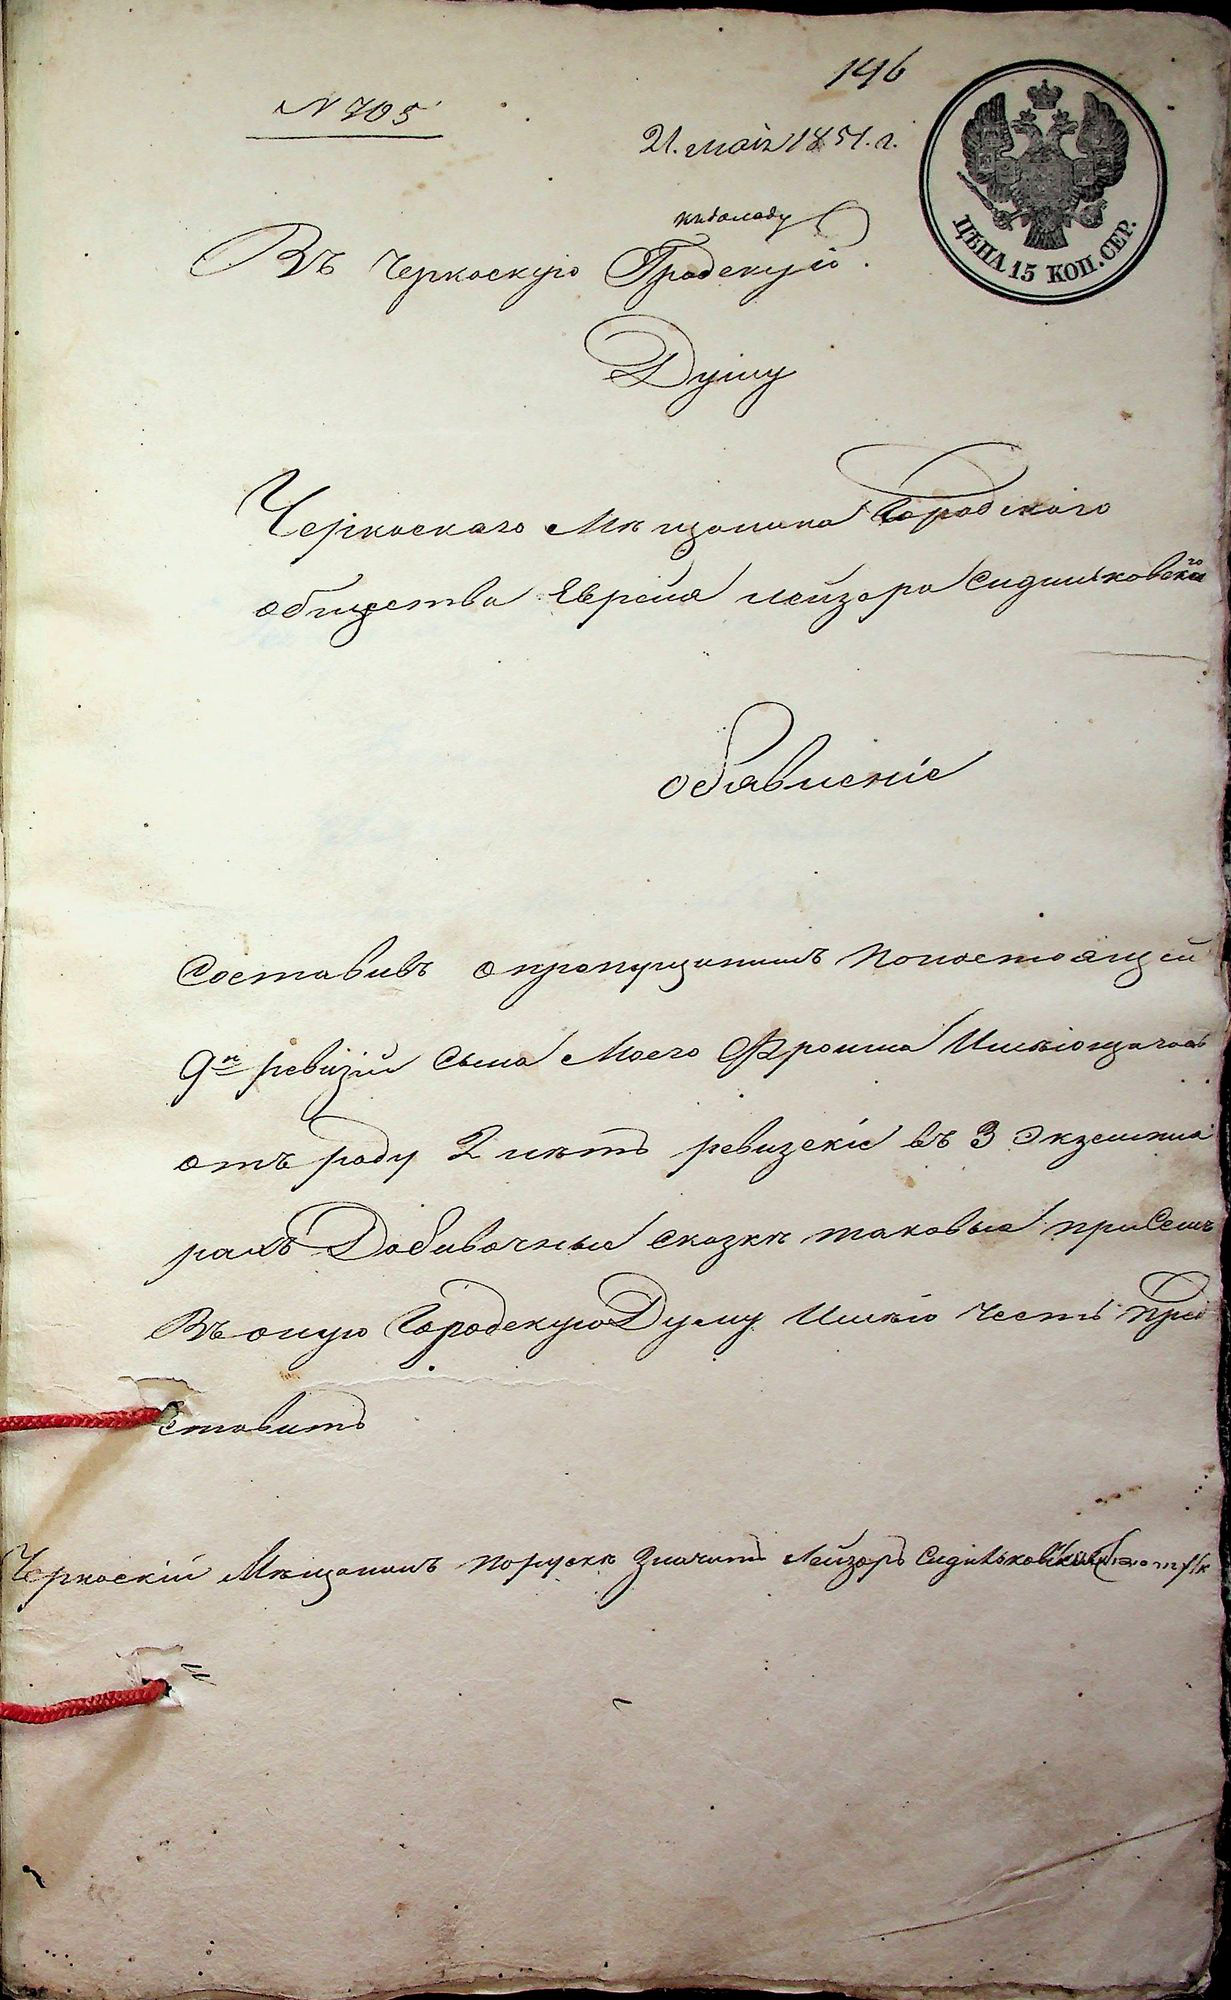 146
N 705
21. мая 1851. г.
ЦѢНА 15 КОП. СЕР.
къ докладу
Въ Черкаскую Градскую
Думу
Черкаскаго Мѣщанина Городскаго
общества Еврея Лейзера Сидилковскаго
обявленіе
Составивъ о пропущеннымъ понастоящей
9й ревизіи сына Моего Фроима Имѣющагось
отъ роду 2 летъ ревизскіе въ 3 Экземпля
рахъ Добавочные сказкѣ таковые присемъ
Въ оную Городскую Думу Имѣю честь пред
ставить
Черкаскій Мѣщанинъ порускѣ Значитъ Лейзеръ Сидильковскій